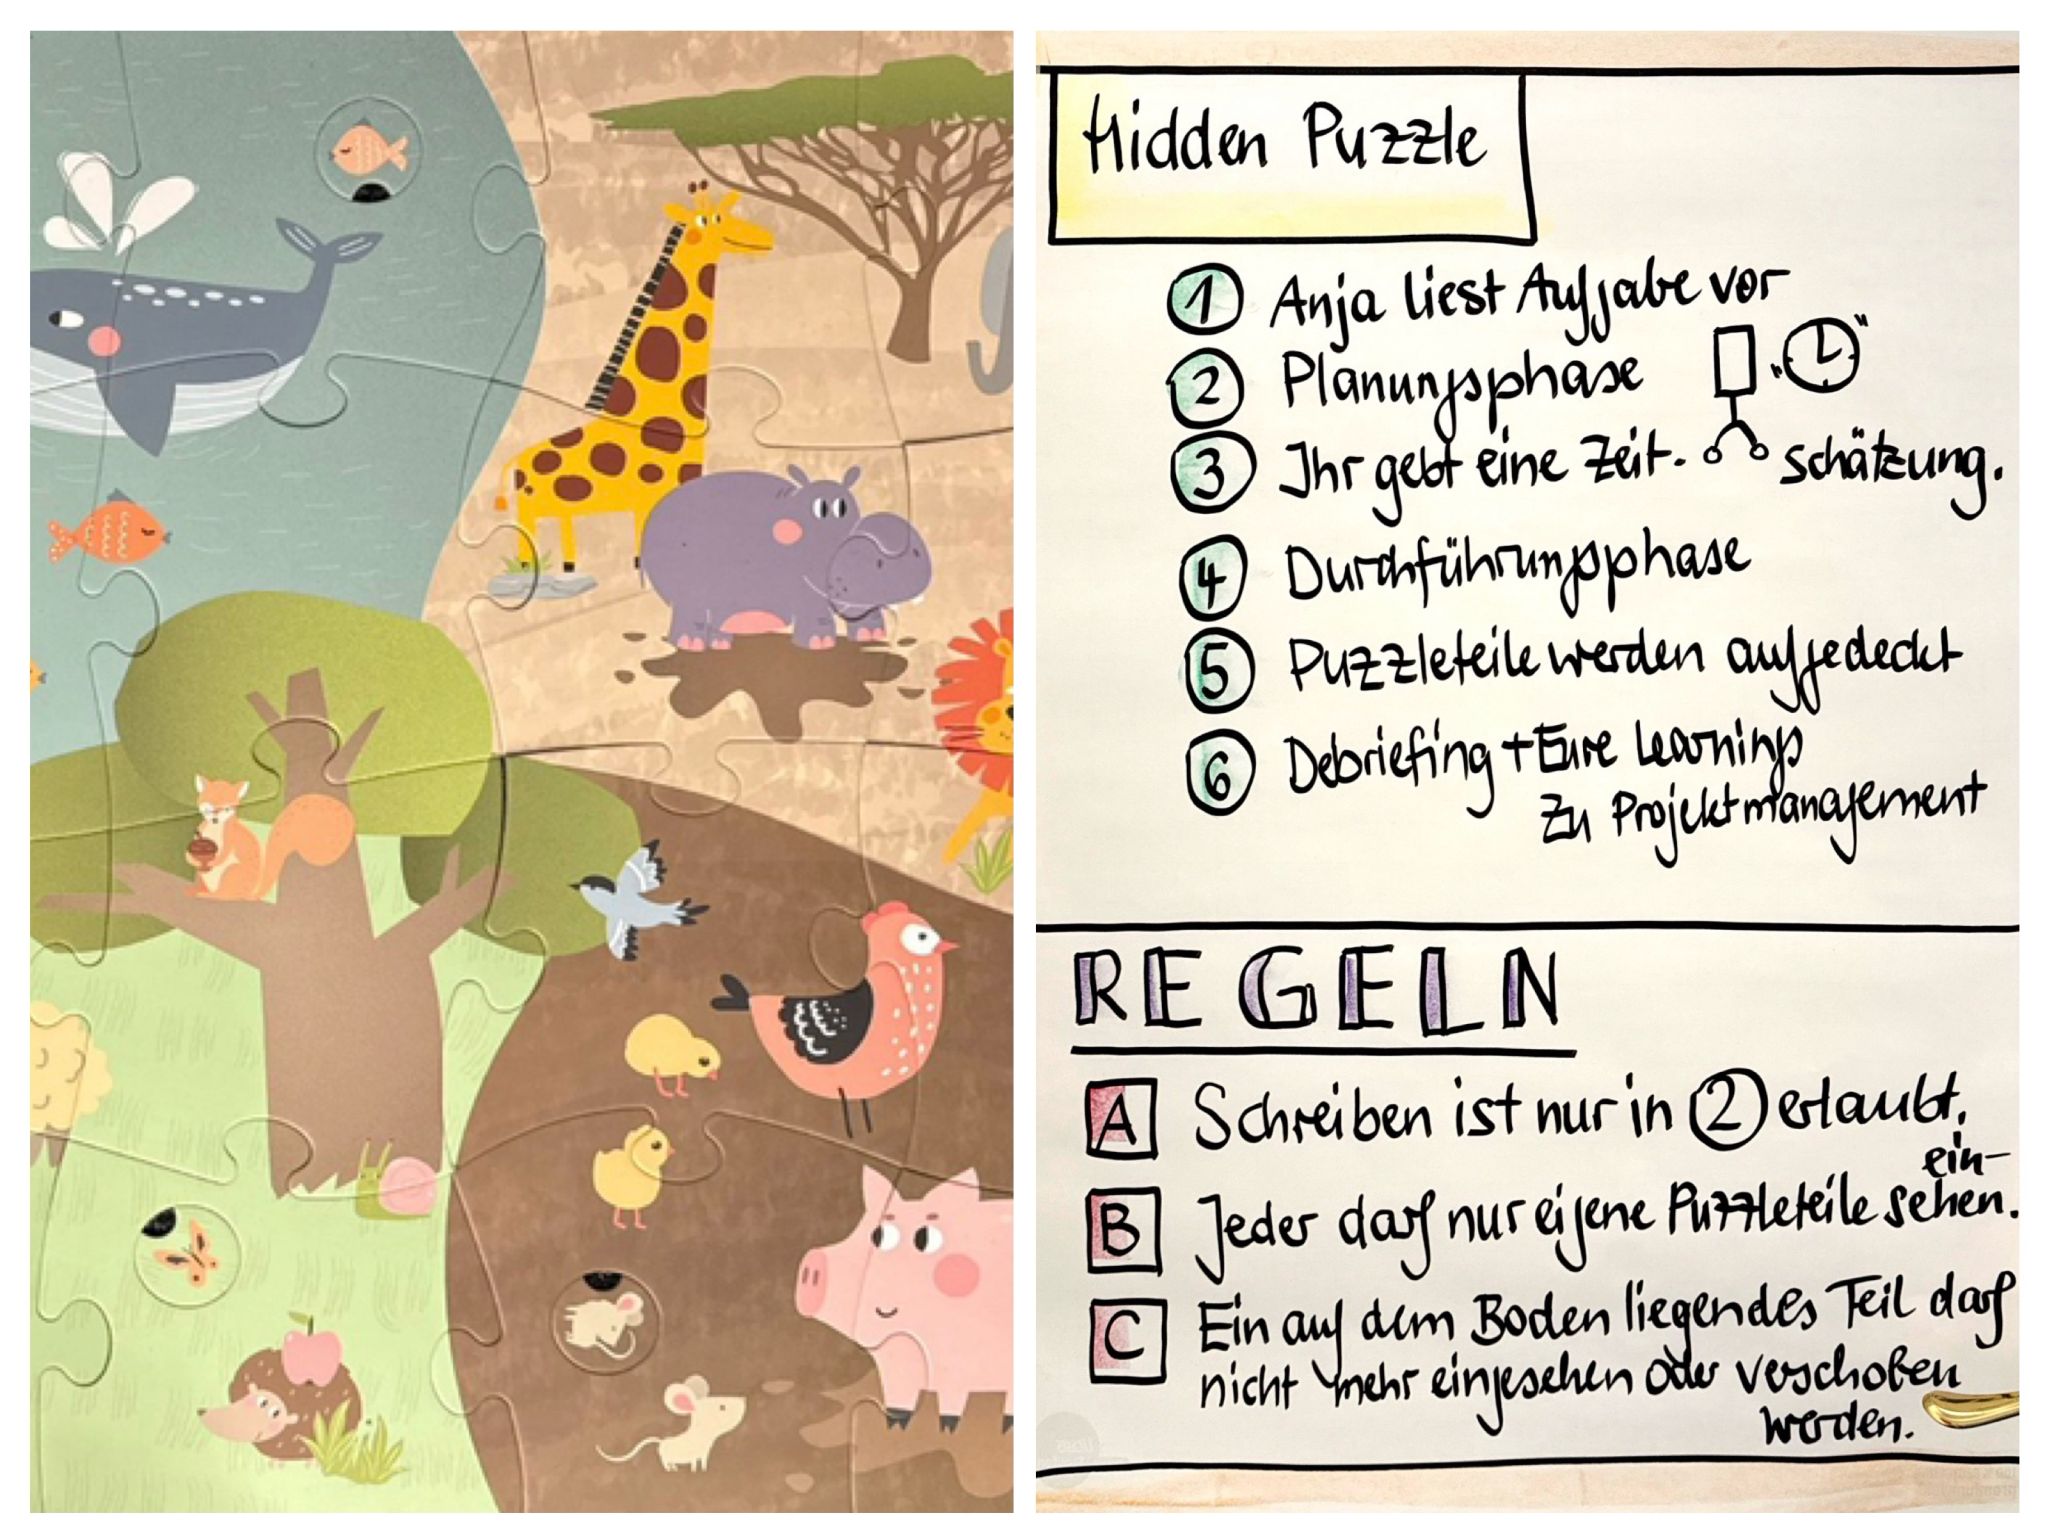 Hidden Puzzle
1 Anja liest Aufgabe vor
2 Planungsphase
3 Ihr gebt eine Zeit- schätzung.
4 Durchführungsphase
5 Puzzleteile werden aufgedeckt
6 Debriefing + Eure Learnings
zu Projektmanagement
REGELN
A Schreiben ist nur in 2 erlaubt.
B Jeder darf nur eigene Puzzleteile ein-
sehen.
C Ein auf dem Boden liegendes Teil darf
nicht mehr eingesehen oder verschoben
werden.